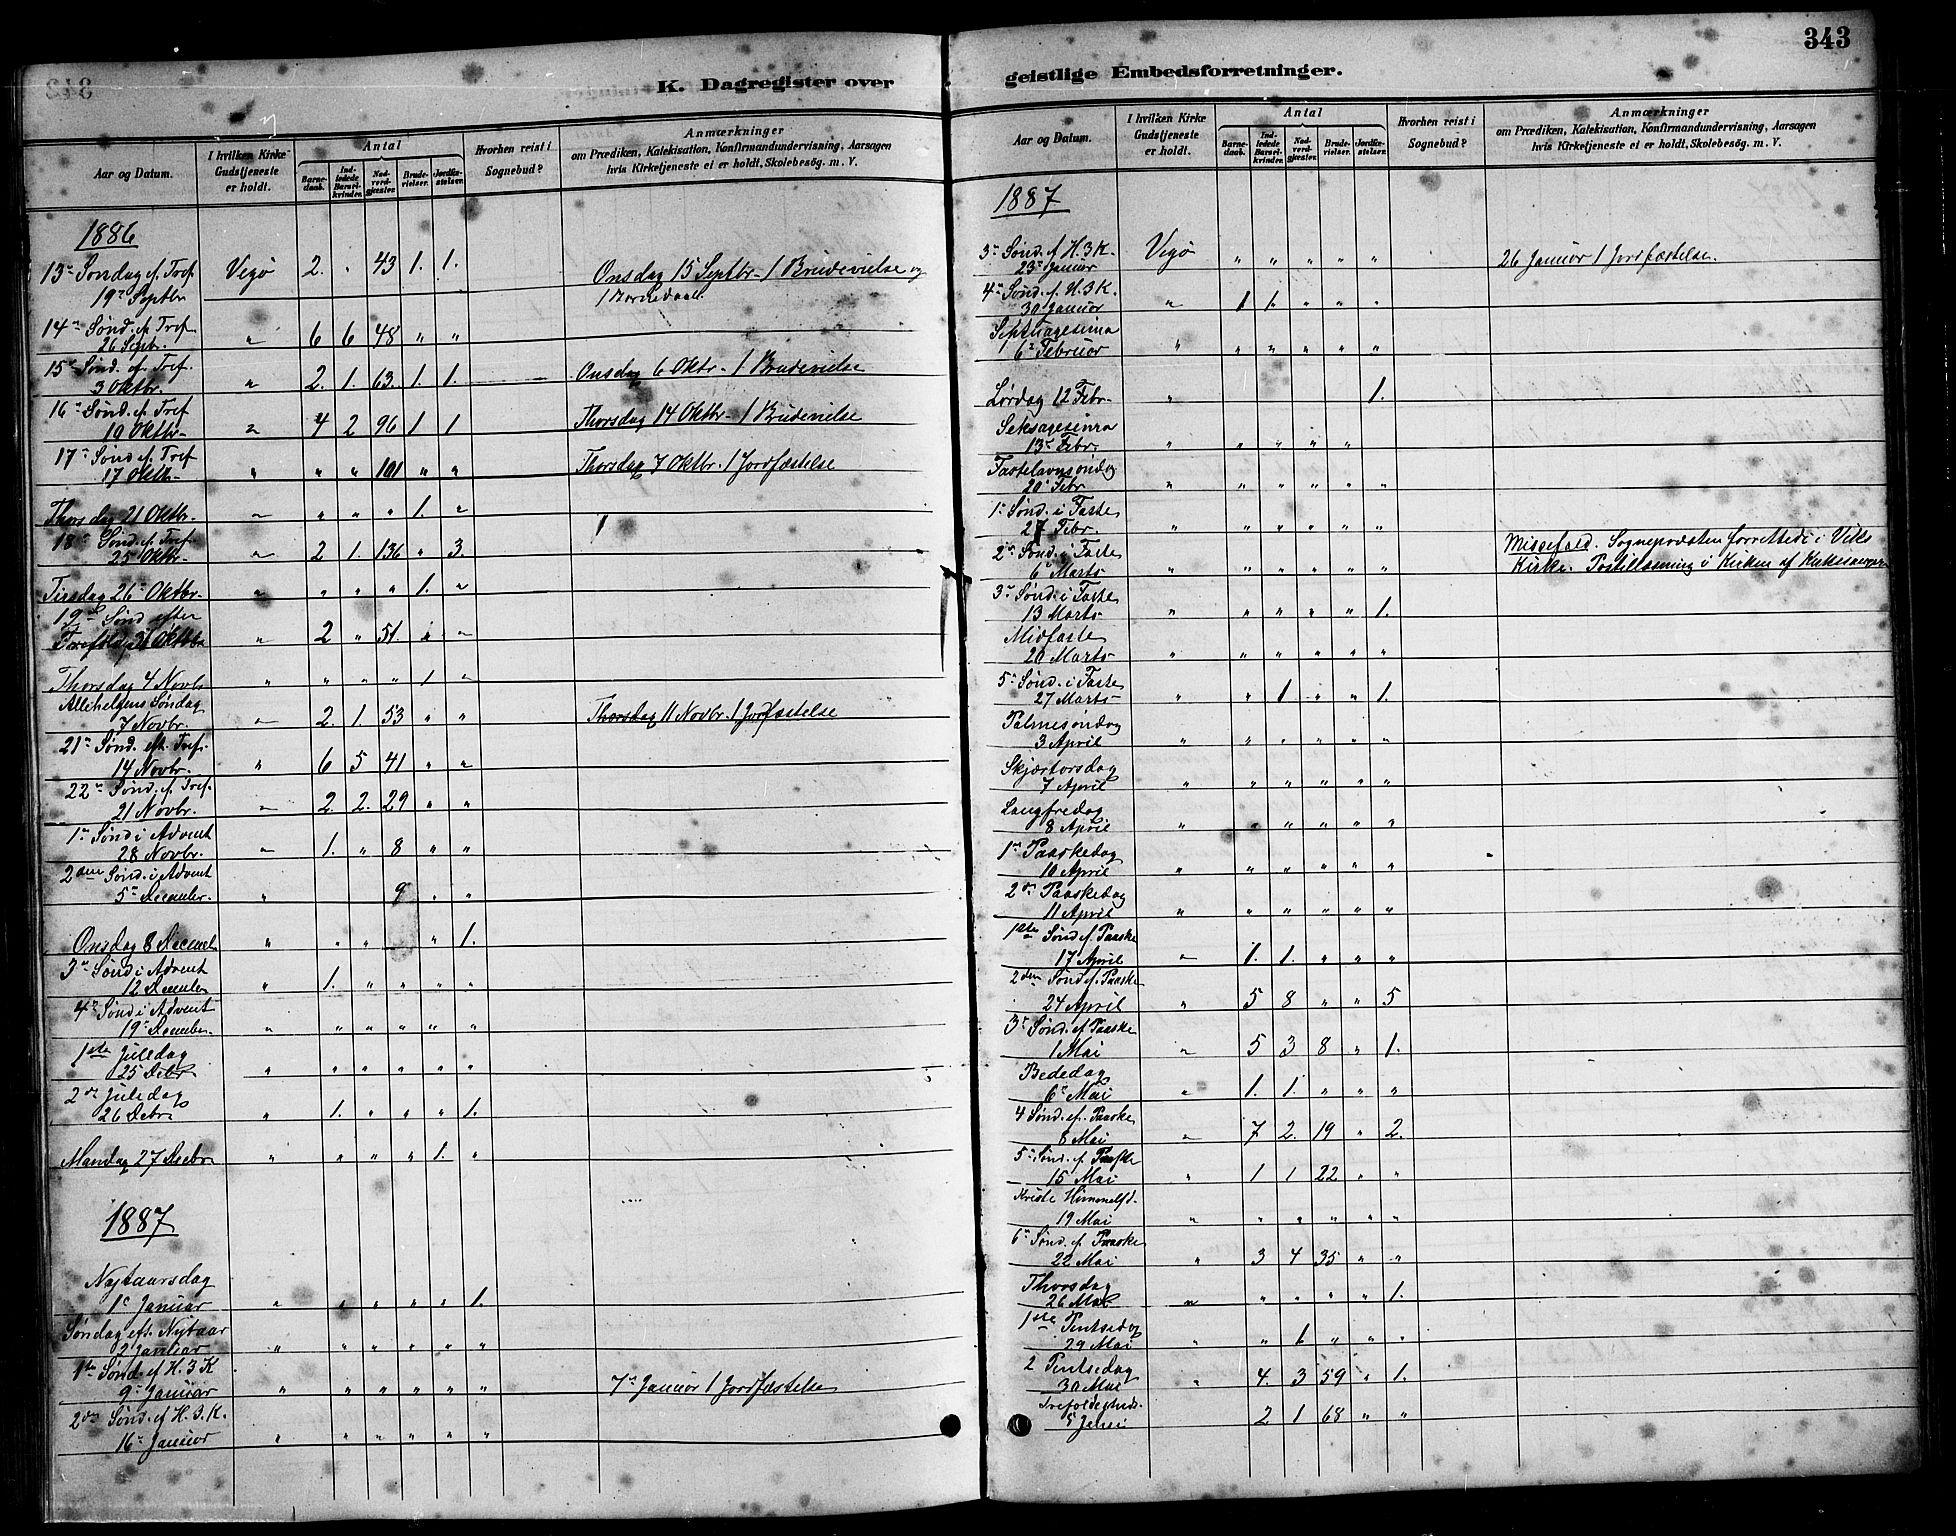 343
K. Dagregister over
geistlige Embedsforretninger.
Aar og Datum.
I hvilken Kirke Gudstjeneste er holdt.
Antal
Barnedaab.
Indledede Barselkvinder.
Nadverdgjæster.
Brudevielser.
Jordfæstelser.
Hvorhen reist i Sognebud?
Anmærkninger
om Prædiken, Katekisation, Konfirmandundervisning, Aarsagen
hvis Kirketjeneste ei er holdt, Skolebesøg. m. V.
1886
13de Søndag ef. Tref. 19de Septbr Vegø 2. " 43 1. 1. Onsdag 15 Septbr. 1 Brudevielse og
1 Barnedaab.
14de Sønd. ef. Tref. 26 Sept. " 6 6 48 " "
15de Sønd. ef. Tref. 3 Oktbr. " 2. 1. 63. 1. 1. Onsdag 6 Oktr. 1 Brudevielse
16de Sønd. ef. Tref 10 Oktbr. " 4 2 96 1. 1 Thorsdag 14 Oktbr. 1 Brudevielse
17de Sønd. ef. Tref 17 Oktbr. " " " 101 " " Thorsdag 7 Oktbr. 1 Jordfæstelse
Thorsdag 21 Oktbr. " " " " 1. "
18de Sønd. ef. Tref. 25 Oktbr. " 2 1. 136 " 3.
Tirsdag 26 Oktbr. " " " " 1. "
19de Sønd efter Trefold. 31 Oktbr " 2 " 51. " "
Thorsdag 4 Novbr " " " " 1. "
Allehelgens Søndag 7 Novbr. " 2. 1. 53 " " Thorsdag 11 Novbr. 1 Jordfæstelse
21de Sønd. eft. Tref. 14 Novbr. " 6 5 41 " "
22de Sønd. ef. Tref. 21 Novbr. " 2. 2. 29 " "
1ste Sønd i Advent 28 Novbr. " 1. " 8 " "
2den Sønd. i Advent 5te December. " 9 " "
Onsdag 8 Decembr " " " " 1.
3de Sønd i Advent 12 December " 1. " " " "
4de Sønd i Advent 19de December. " " " " " "
1ste Juledag 25 Debr " " " " " "
2den Juledag 26 Debr. " 1. " " " 1.
Mandag 27 Decbr. " " " " 1. "
1887
Nytaarsdag 1ste Januar " " " " " 1.
Søndag eft. Nytaar 2 Januar " " " " " "
1ste Sønd. ef H. 3 K 9de Januar " " " " " " 7de Januar 1 Jordfæstelse
2den Sønd. ef H. 3 K. 16de Januar " " " " " "
1887
3de Sønd. ef H. 3 K. 23de Januar Vegø " " " " " 26 Januar 1 Jordfæstelse.
4de Sønd. ef. H. 3 K. 30 Januar " 1 1. " " "
Septuagesima 6te Februar " " " " " "
Lørdag 12 Febr. " 1.
Seksagesima 13de Febr. " " " " "
Fastelavnsøndag 20de Febr " " " " " "
1ste Sønd. i Faste 27 Febr. " " " " " "
2den Sønd. i Faste 6te Marts " " " " " " Messefald. Sognepræsten forrettede i Viks
Kirke. Postillæsning i Kirken af Kirkesanger
3de Sønd. i Faste 13 Marts " " " " " 1.
Midfaste 20 Marts " " " " " "
5te Sønd. i Faste 27 Marts " " 1 " " 1.
Palmesøndag 3 April " " " " " "
Skjærtorsdag 7 April " " " " " "
Langfredag 8 April " " " " " "
1ste Paaskedag 10 April " " " " " "
2den Paaskedag 11 April " " " " " "
1ste Sønd ef. Paaske 17 April " 1. 1. " " "
2den Sønd ef. Paaske 24 April " 5 8 " " 5
3de Sønd. ef Paaske 1 Mai " 5 3 8 " 1.
Bededag 6te Mai " 1. 1. " " "
4 Sønd. ef. Paaske 8 Mai " 7 2. 19 " 2.
5te Sønd. ef Paaske 15 Mai " 1 1 22 " "
Kristi Himmelfd. 19 Mai " " " " " "
6te Sønd. ef. Paaske 22 Mai " 3 4 35 " "
Thorsdag 26 Mai " " " " " 1.
1ste Pintsedag 29 Mai " " 6 " " "
2 Pintsedag 30 Mai " 4. 3 59 " 1.
Trefoldigheds. 5 Juni 2 1 68 " "